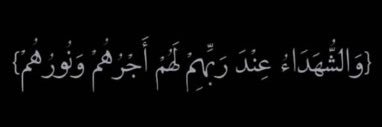 {وَالشُّهَدَاءُ عِنْدَ رَبِّهِمْ لَهُمْ أَجْرُهُمْ وَنُورُهُمْ}